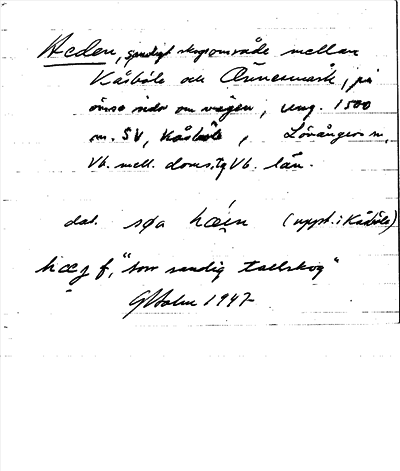 Heden, sandigt skogsområde mellan
Kåsböle och Önnesmark, på
ömse sidor om vägen, ung. 1500
m. SV, Kåsböle, Lövångers sn,
Vb. mell. doms. Vb. län.
dat. søa hæin (uppt. i Kåsböle)
hæj f, "torr sandig tallskog"
GHolm 1947